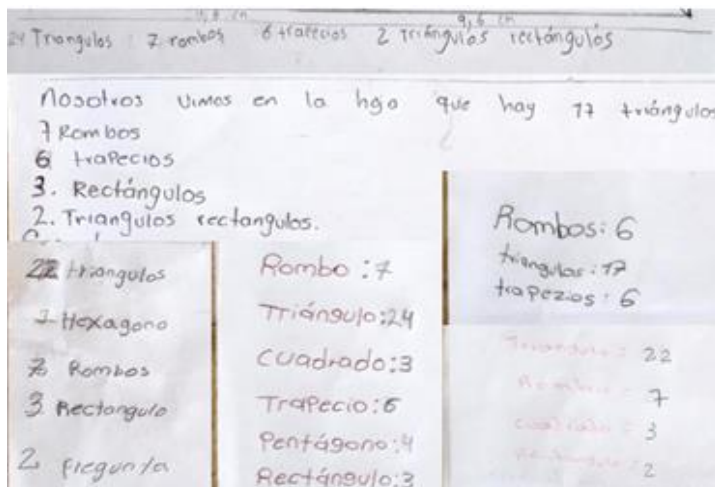 9,6 cm
24 Triangulos 7 rombos 6 trapecios 2 triángulos rectángulos
Nosotros vimos en la hoja que hay 17 triángulos
7 Rombos
6 trapecios
3. Rectángulos
2. Triangulos rectangulos.
Rombos: 6
triangulos: 17
trapezios: 6
22 triangulos
1 Hexagono
7 Rombos
3 Rectangulo
2
Rombo: 7
Triángulo: 24
Cuadrado: 3
Trapecio: 6
Pentágono: 4
Rectángulo: 3
Triangulo: 22
Rombo: 7
cuadrado: 3
Rectangulo: 2